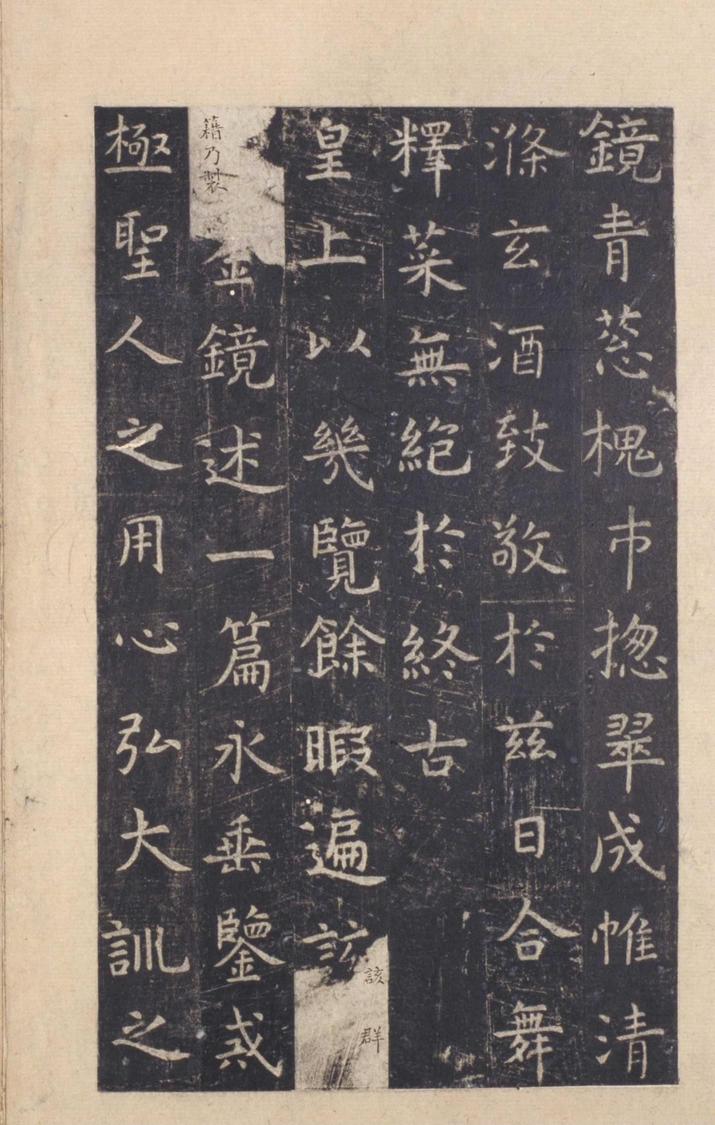 鏡青蔥槐市揔翠成帷清
滌玄酒致敬於兹日合舞
釋菜無絕於終古
皇上以幾覽餘暇遍該
該群
籍乃製
金鏡述一篇永垂鑒戒
極聖人之用心弘大訓之